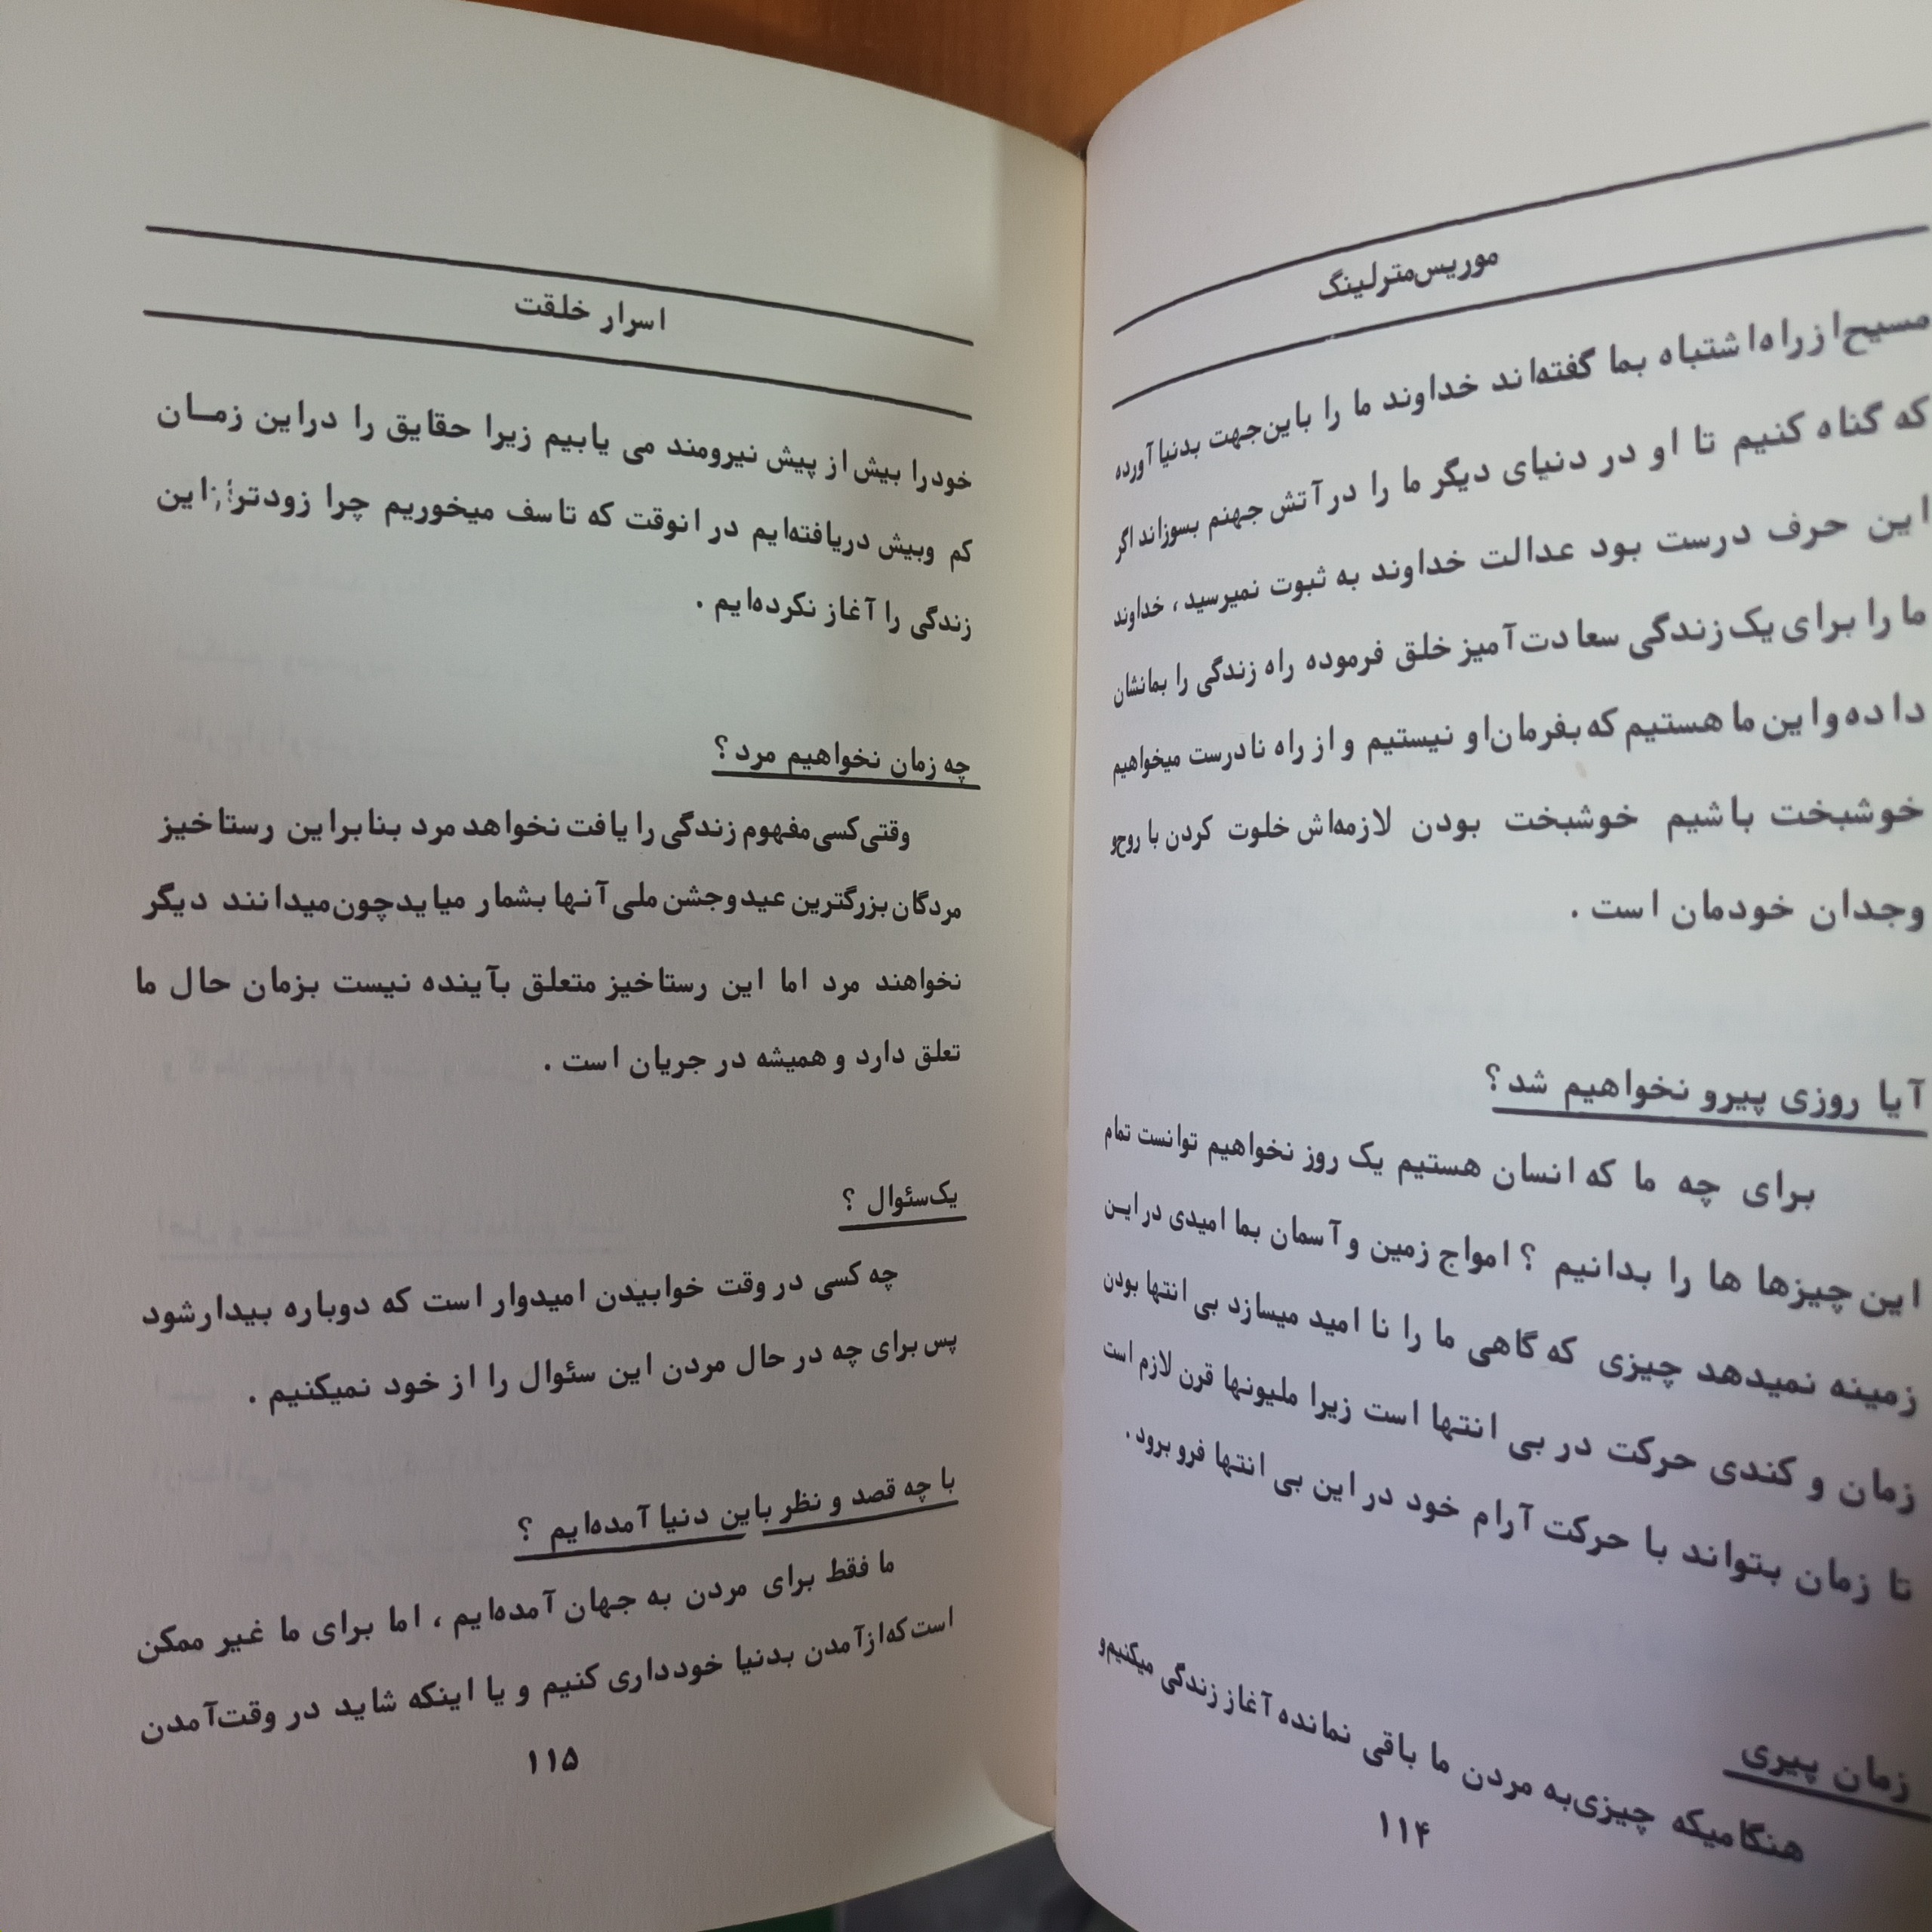 موریس‌مترلینگ
مسیح از راه اشتباه بما گفته‌اند خداوند ما را باین‌جهت بدنیا آورده
که گناه کنیم تا او در دنیای دیگر ما را در آتش جهنم بسوزاند اگر
این حرف درست بود عدالت خداوند به ثبوت نمیرسید ، خداوند
ما را برای یک زندگی سعادت آمیز خلق فرموده راه زندگی را بمانشان
داده و این ما هستیم که بفرمان او نیستیم و از راه نادرست میخواهیم
خوشبخت باشیم خوشبخت بودن لازمه‌اش خلوت کردن با روح و
وجدان خودمان است .
آیا روزی پیرو نخواهیم شد ؟
برای چه ما که انسان هستیم یک روز نخواهیم توانست تمام
این چیزها ها را بدانیم ؟ امواج زمین و آسمان بما امیدی در این
زمینه نمیدهد چیزی که گاهی ما را نا امید میسازد بی انتها بودن
زمان و کندی حرکت در بی انتها است زیرا ملیونها قرن لازم است
تا زمان بتواند با حرکت آرام خود در این بی انتها فرو برود .
زمان پیری
هنگامیکه چیزی به مردن ما باقی نمانده آغاز زندگی میکنیم و
۱۱۴
اسرار خلقت
خودرا بیش از پیش نیرومند می یابیم زیرا حقایق را دراین زمــان
کم وبیش دریافته‌ایم در انوقت که تاسف میخوریم چرا زودتر این
زندگی را آغاز نکرده‌ایم .
چه زمان نخواهیم مرد ؟
وقتی کسی مفهوم زندگی را یافت نخواهد مرد بنابراین رستاخیز
مردگان بزرگترین عید و جشن ملی آنها بشمار میاید چون میدانند دیگر
نخواهند مرد اما این رستاخیز متعلق بآینده نیست بزمان حال ما
تعلق دارد و همیشه در جریان است .
یک سئوال ؟
چه کسی در وقت خوابیدن امیدوار است که دوباره بیدار شود
پس برای چه در حال مردن این سئوال را از خود نمیکنیم .
با چه قصد و نظر باین دنیا آمده‌ایم ؟
ما فقط برای مردن به جهان آمده‌ایم ، اما برای ما غیر ممکن
است که از آمدن بدنیا خودداری کنیم و یا اینکه شاید در وقت آمدن
۱۱۵